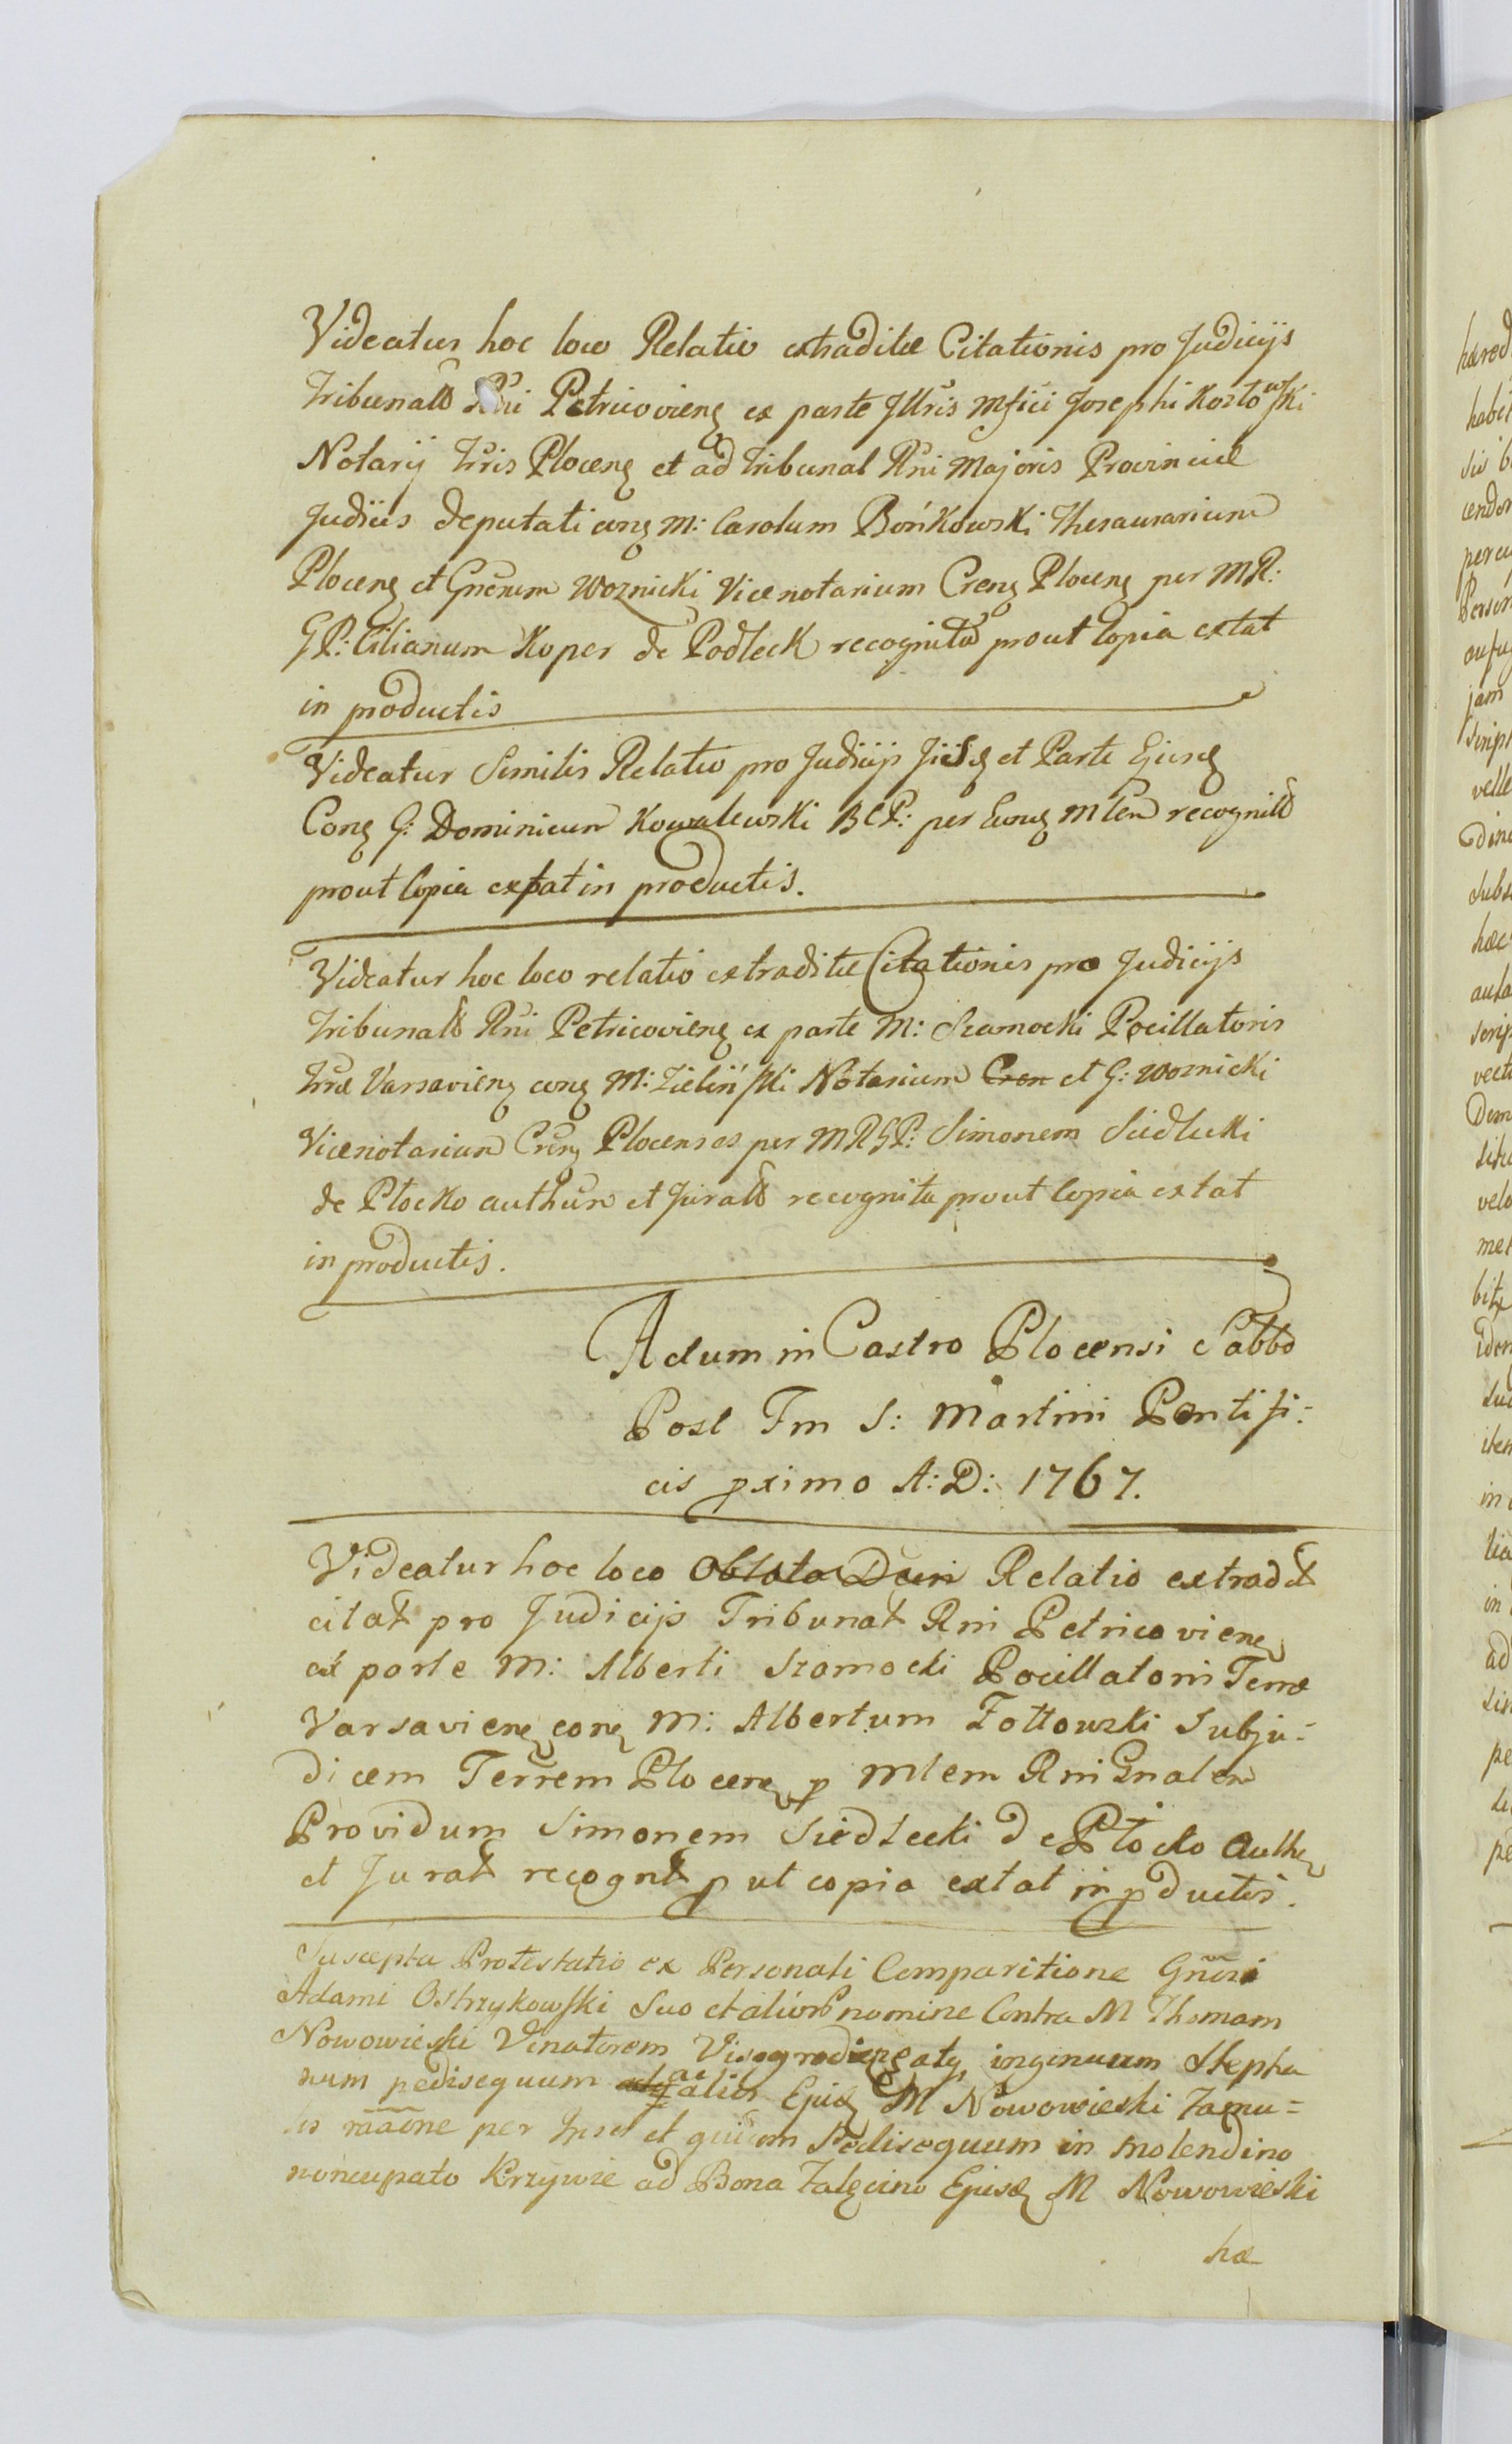 Videatur hoc loco Relatio extraditæ Citationis pro Judicijs
Tribunalis Rni Petricoviens ex parte Jllris Mfici Josephi Kozłowski
Notarij Trris Plocens et ad Tribunal Rni Majoris Provinciæ
Judiis deputati cons M: Carolum Bońkowski Thesaurarium
Plocens et Gnerum Woznicki Vicenotarium Crens Plocens per MR:
GP: Cilianum Koper de Podleck recognita prout Copia extat
in productis
Videatur Similis Relatio pro Judicijs et Parte Ejusd
Cons G: Dominicum Kowalewski BCP: per Eund Mlem recognita
prout Copia extat in productis.
Videatur hoc loco relatio extraditæ Citationis pro Judicijs
Tribunalis Rni Petricoviens ex parte M: Szamocki Pocillatoris
Trræ Varsaviens cons M: Zieliński Notarium Cren et G: Woznicki
Vicenotarium Crens Plocenses per MRGP: Simonem Siedlecki
de Płocko authen et Jurat recognita prout Copia extat
in productis.
Actum in Castro Plocensi Sabbo
Post Fm S: Martini Pontifi:
cis pximo A: D: 1767.
Videatur hoc loco Oblata Relatio extradit
citat pro Judicijs Tribunat Rni Petricoviens
ex parte M: Alberti Szamocki Pocillatoris Terræ
Varsaviens cons M: Albertum Zołtowski Subju:
dicem Terrem Plocens p Mlem Rni Gnalem
Providum Simonem Siedlecki de Płocko Authen
et Jurat recognit put copia extat in pductis.
Suscepta Protestatio ex Personali Comparitione Gnosi
Adami Ostrzykowski Suo et aliorum nomine Contra M Thomam
Nowowieski Venatorem Visogrodiens atq ingenuum Stepha
num pedisequum ac alios Ejusd M Nowowieski Famu=
los raaone per Ipsos et quidem Pedisequum in molendino
noncupato Krzywie ad Bona Zalęcino Ejusd M Nowowieski
hæ